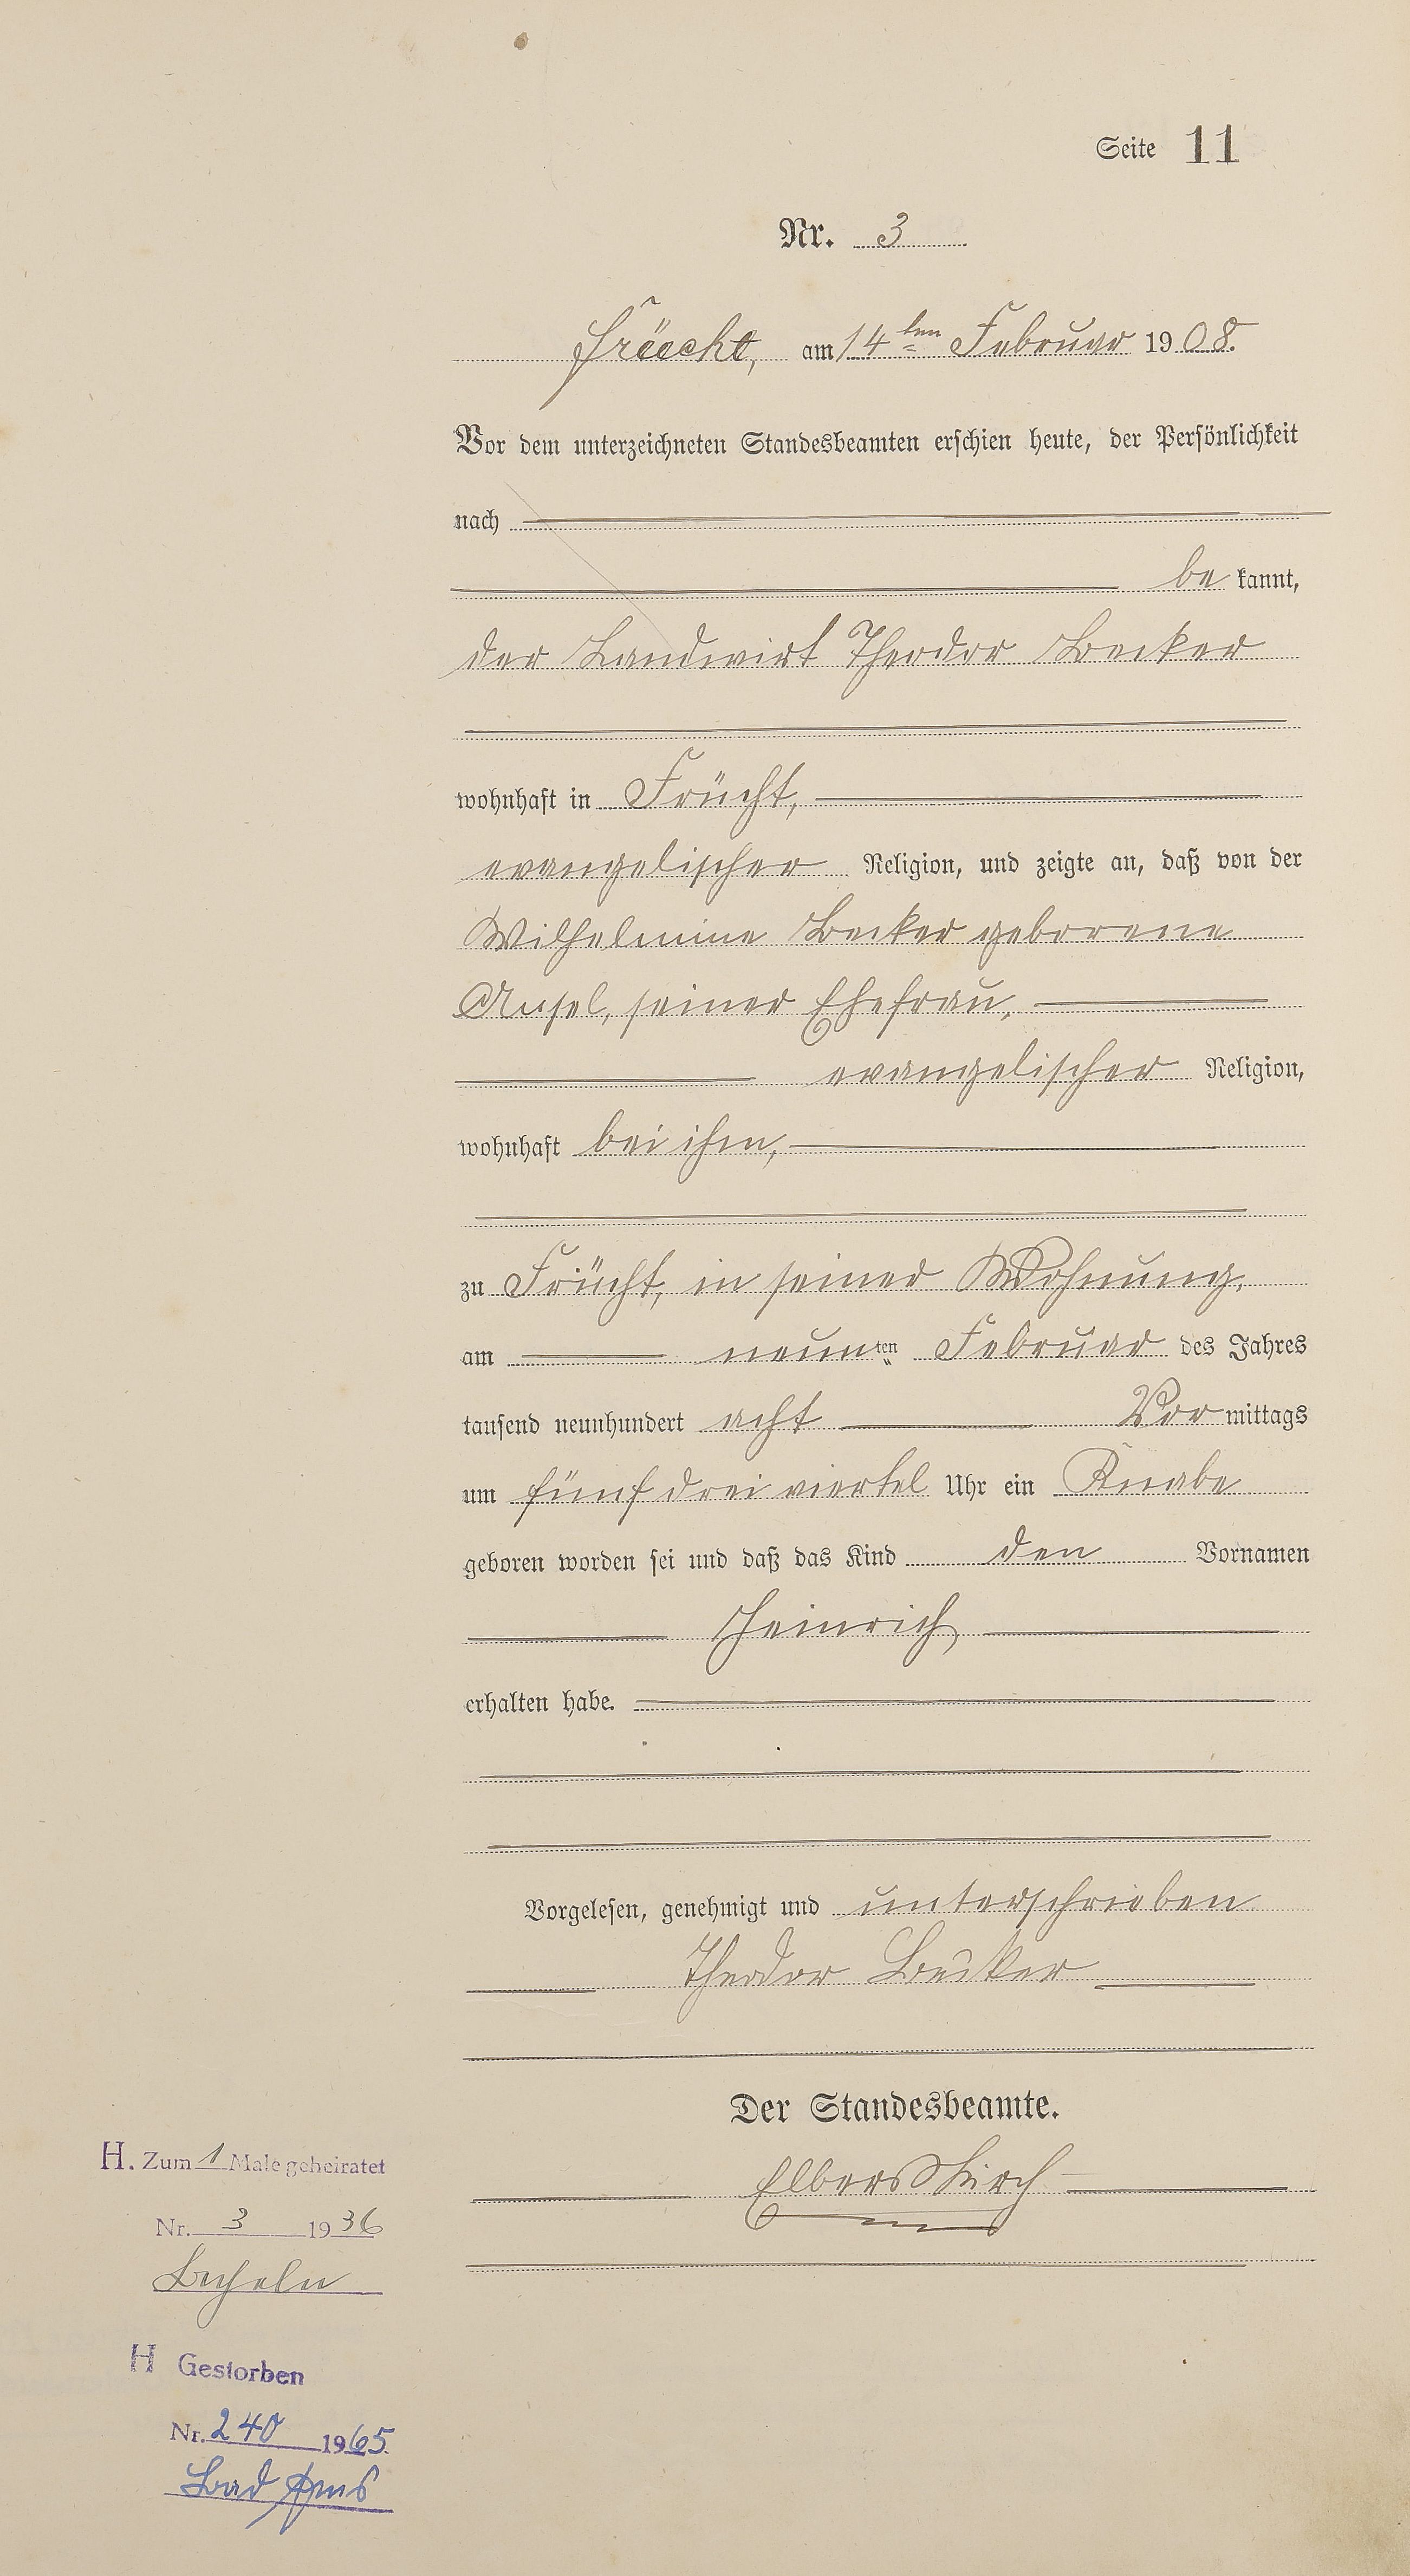 Seite 11
Nr. 3
Früecht, am 14ten Februar 1908.
Vor dem unterzeichneten Standesbeamten erschien heute, der Persönlichkeit
nach
be kannt,
der Landwirt Theodor Becker
wohnhaft in Frücht,
evangelischer Religion, und zeigte an, daß von der
Wilhelmine Becker geborene
Ansel, seiner Ehefrau,
evangelischer Religion,
wohnhaft bei ihm,
zu Frücht, in seiner Wohnung,
am neunten Februar des Jahres
tausend neunhundert acht Vor mittags
um fünf drei viertel Uhr ein Knabe
geboren worden sei und daß das Kind den Vornamen
Heinrich
erhalten habe.
Vorgelesen, genehmigt und unterschrieben
Theodor Becker
Der Standesbeamte.
Elberskirch
H. Zum 1 Male geheiratet
Nr. 3 1936
Becheln
H Gestorben
Nr. 240 1965
Bad Ems